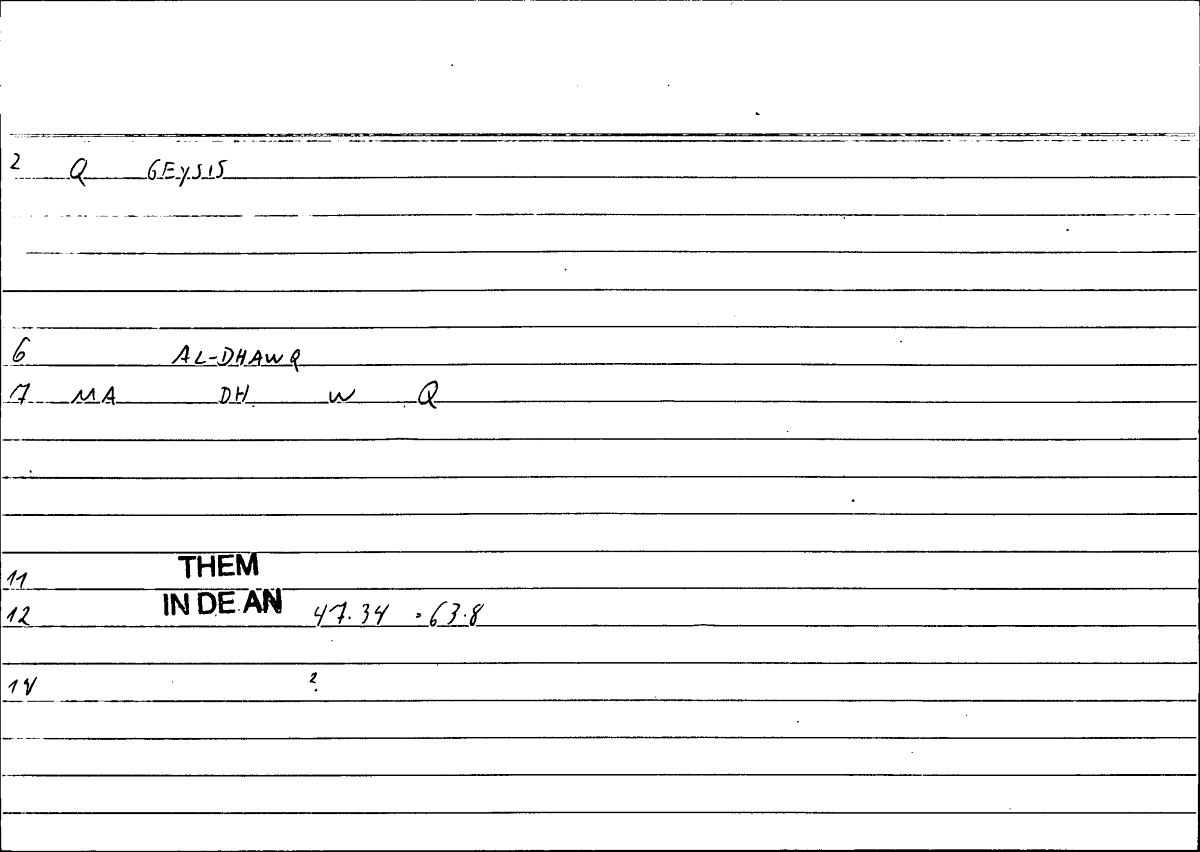 2 Q GEYSIS
6 AL-DHAWQ
7 MA DH W Q
11 THEM
12 IN DE AN 47.34 .63.8
14 ?